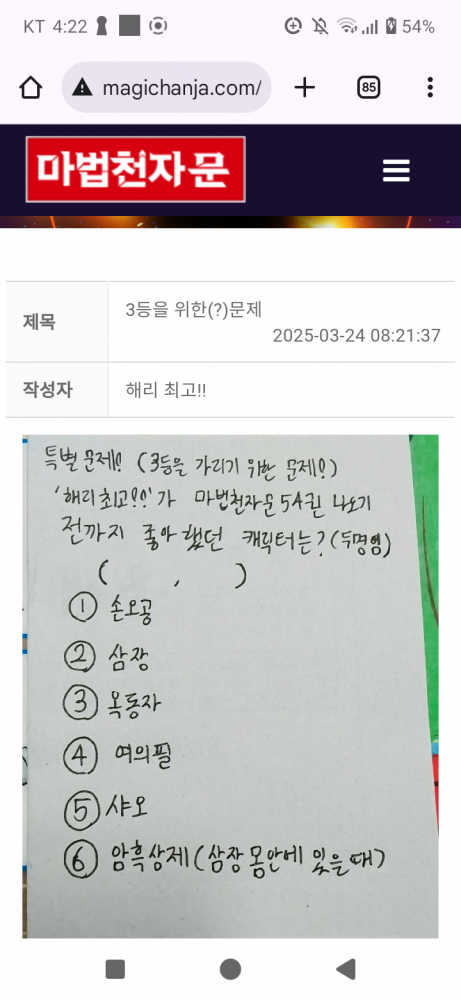 KT 4:22
54%
magichanja.com/
85
마법천자문
제목
3등을 위한(?)문제
2025-03-24 08:21:37
작성자
해리 최고!!
특별문제! (3등을 가리기 위한 문제!)
'해리최고!!'가 마법천자문 54권 나오기
전까지 좋아했던 캐릭터는? (두명임)
( , )
① 손오공
② 삼장
③ 옥동자
④ 여의필
⑤ 샤오
⑥ 암흑상제(삼장 몸안에 있을때)